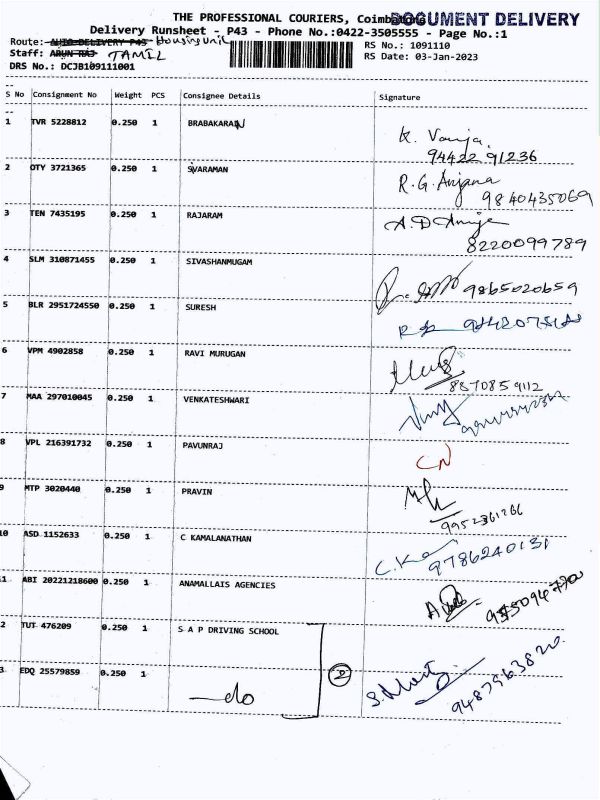 THE PROFESSIONAL COURIERS, Coimbatore
DOCUMENT DELIVERY
Delivery Runsheet - P43 - Phone No.:0422-3505555 - Page No.:1
Route: AUTO DELIVERY P43 Housing unit
RS No.: 1091110
Staff: ARUN RAJ TAMIL
RS Date: 03-Jan-2023
DRS No.: DCJB109111001
S No Consignment No Weight PCS Consignee Details Signature
1 TVR 5228812 0.250 1 BRABAKARAN K. Vanja
94422 91236
2 OTY 3721365 0.250 1 SIVARAMAN R.G. Anjana
9840435069
3 TEN 7435195 0.250 1 RAJARAM
8220099789
4 SLM 310871455 0.250 1 SIVASHANMUGAM 9865020659
5 BLR 2951724550 0.250 1 SURESH
6 VPM 4902858 0.250 1 RAVI MURUGAN
8870859112
7 MAA 297010045 0.250 1 VENKATESHWARI
8 VPL 216391732 0.250 1 PAVUNRAJ CN
9 MTP 3020440 0.250 1 PRAVIN
9952361266
10 ASD 1152633 0.250 1 C KAMALANATHAN
9786240131
11 ABI 20221218600 0.250 1 ANAMALLAIS AGENCIES
2 TUT 476209 0.250 1 S A P DRIVING SCHOOL
3 EDQ 25579859 0.250 1 do 2